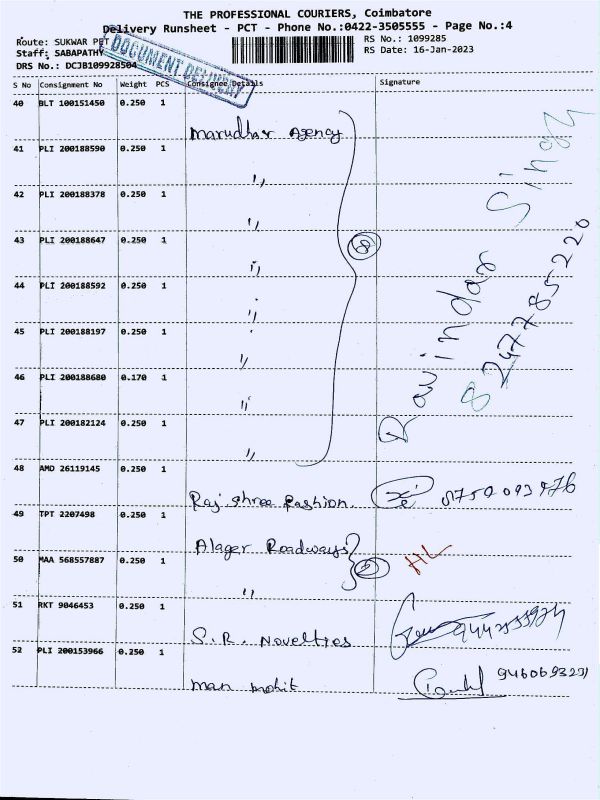 THE PROFESSIONAL COURIERS, Coimbatore
Delivery Runsheet - PCT - Phone No.:0422-3505555 - Page No.:4
Route: SUKWAR PET
Staff: SABAPATHY
DRS No.: DCJB109928504
RS No.: 1099285
RS Date: 16-Jan-2023
DOCUMENT DELIVERY
S No Consignment No Weight PCS Consignee Details Signature
40 BLT 100151450 0.250 1
Marudhar Agency
41 PLI 200188590 0.250 1
"
42 PLI 200188378 0.250 1
"
43 PLI 200188647 0.250 1
"
44 PLI 200188592 0.250 1
"
45 PLI 200188197 0.250 1
"
46 PLI 200188680 0.170 1
"
47 PLI 200182124 0.250 1
"
8
Ravindar Singh
48 AMD 26119145 0.250 1
Raj shree Fashion.
49 TPT 2207498 0.250 1
Alager Roadways
50 MAA 568557887 0.250 1
"
2
HL
51 RKT 9046453 0.250 1
S.R. Novelties
52 PLI 200153966 0.250 1
man mohit